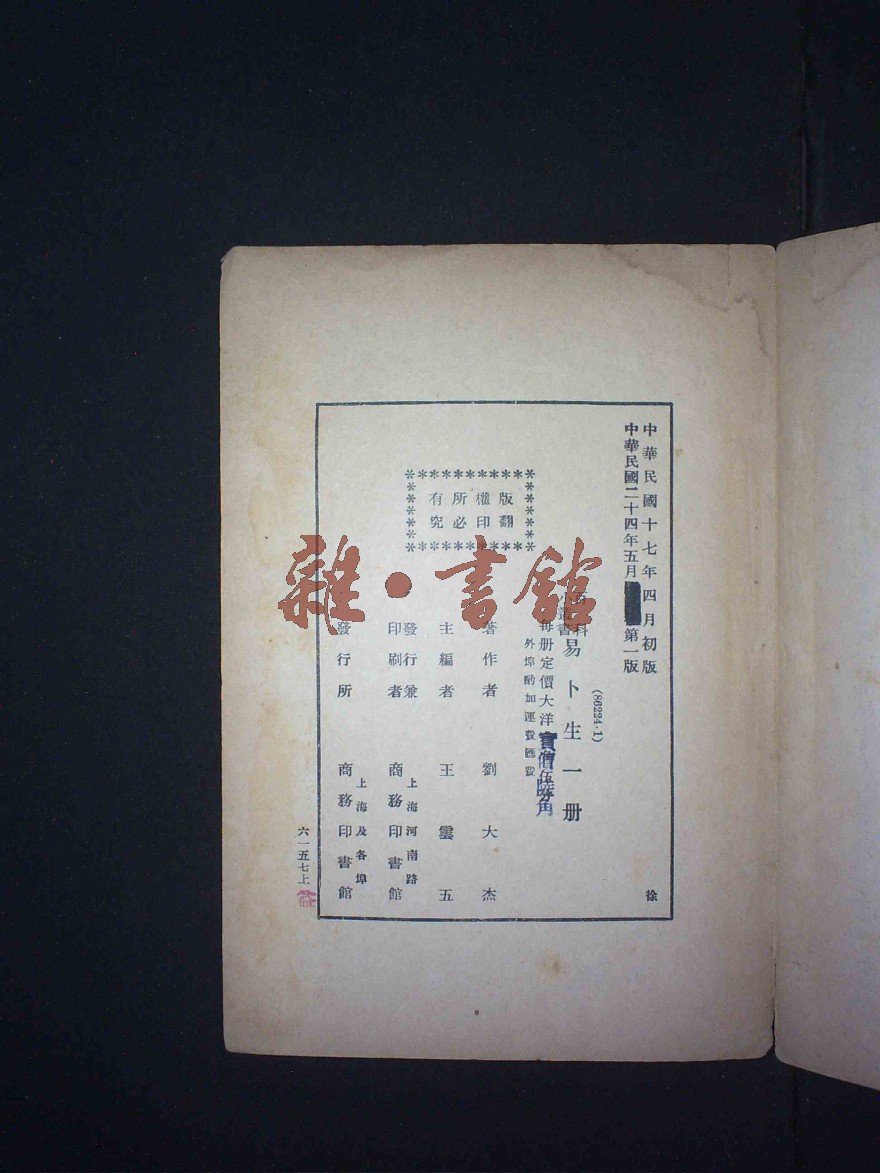 中華民國十七年四月初版
中華民國二十四年五月第一版
(86224·1)
小叢書
易卜生一册
每册定價大洋
實價陸角
外埠酌加運費匯費
版權所有
翻印必究
著作者 劉大杰
主編者 王雲五
發行兼印刷者 上海河南路 商務印書館
發行所 上海及各埠 商務印書館
徐
六一五七上
雜·書館